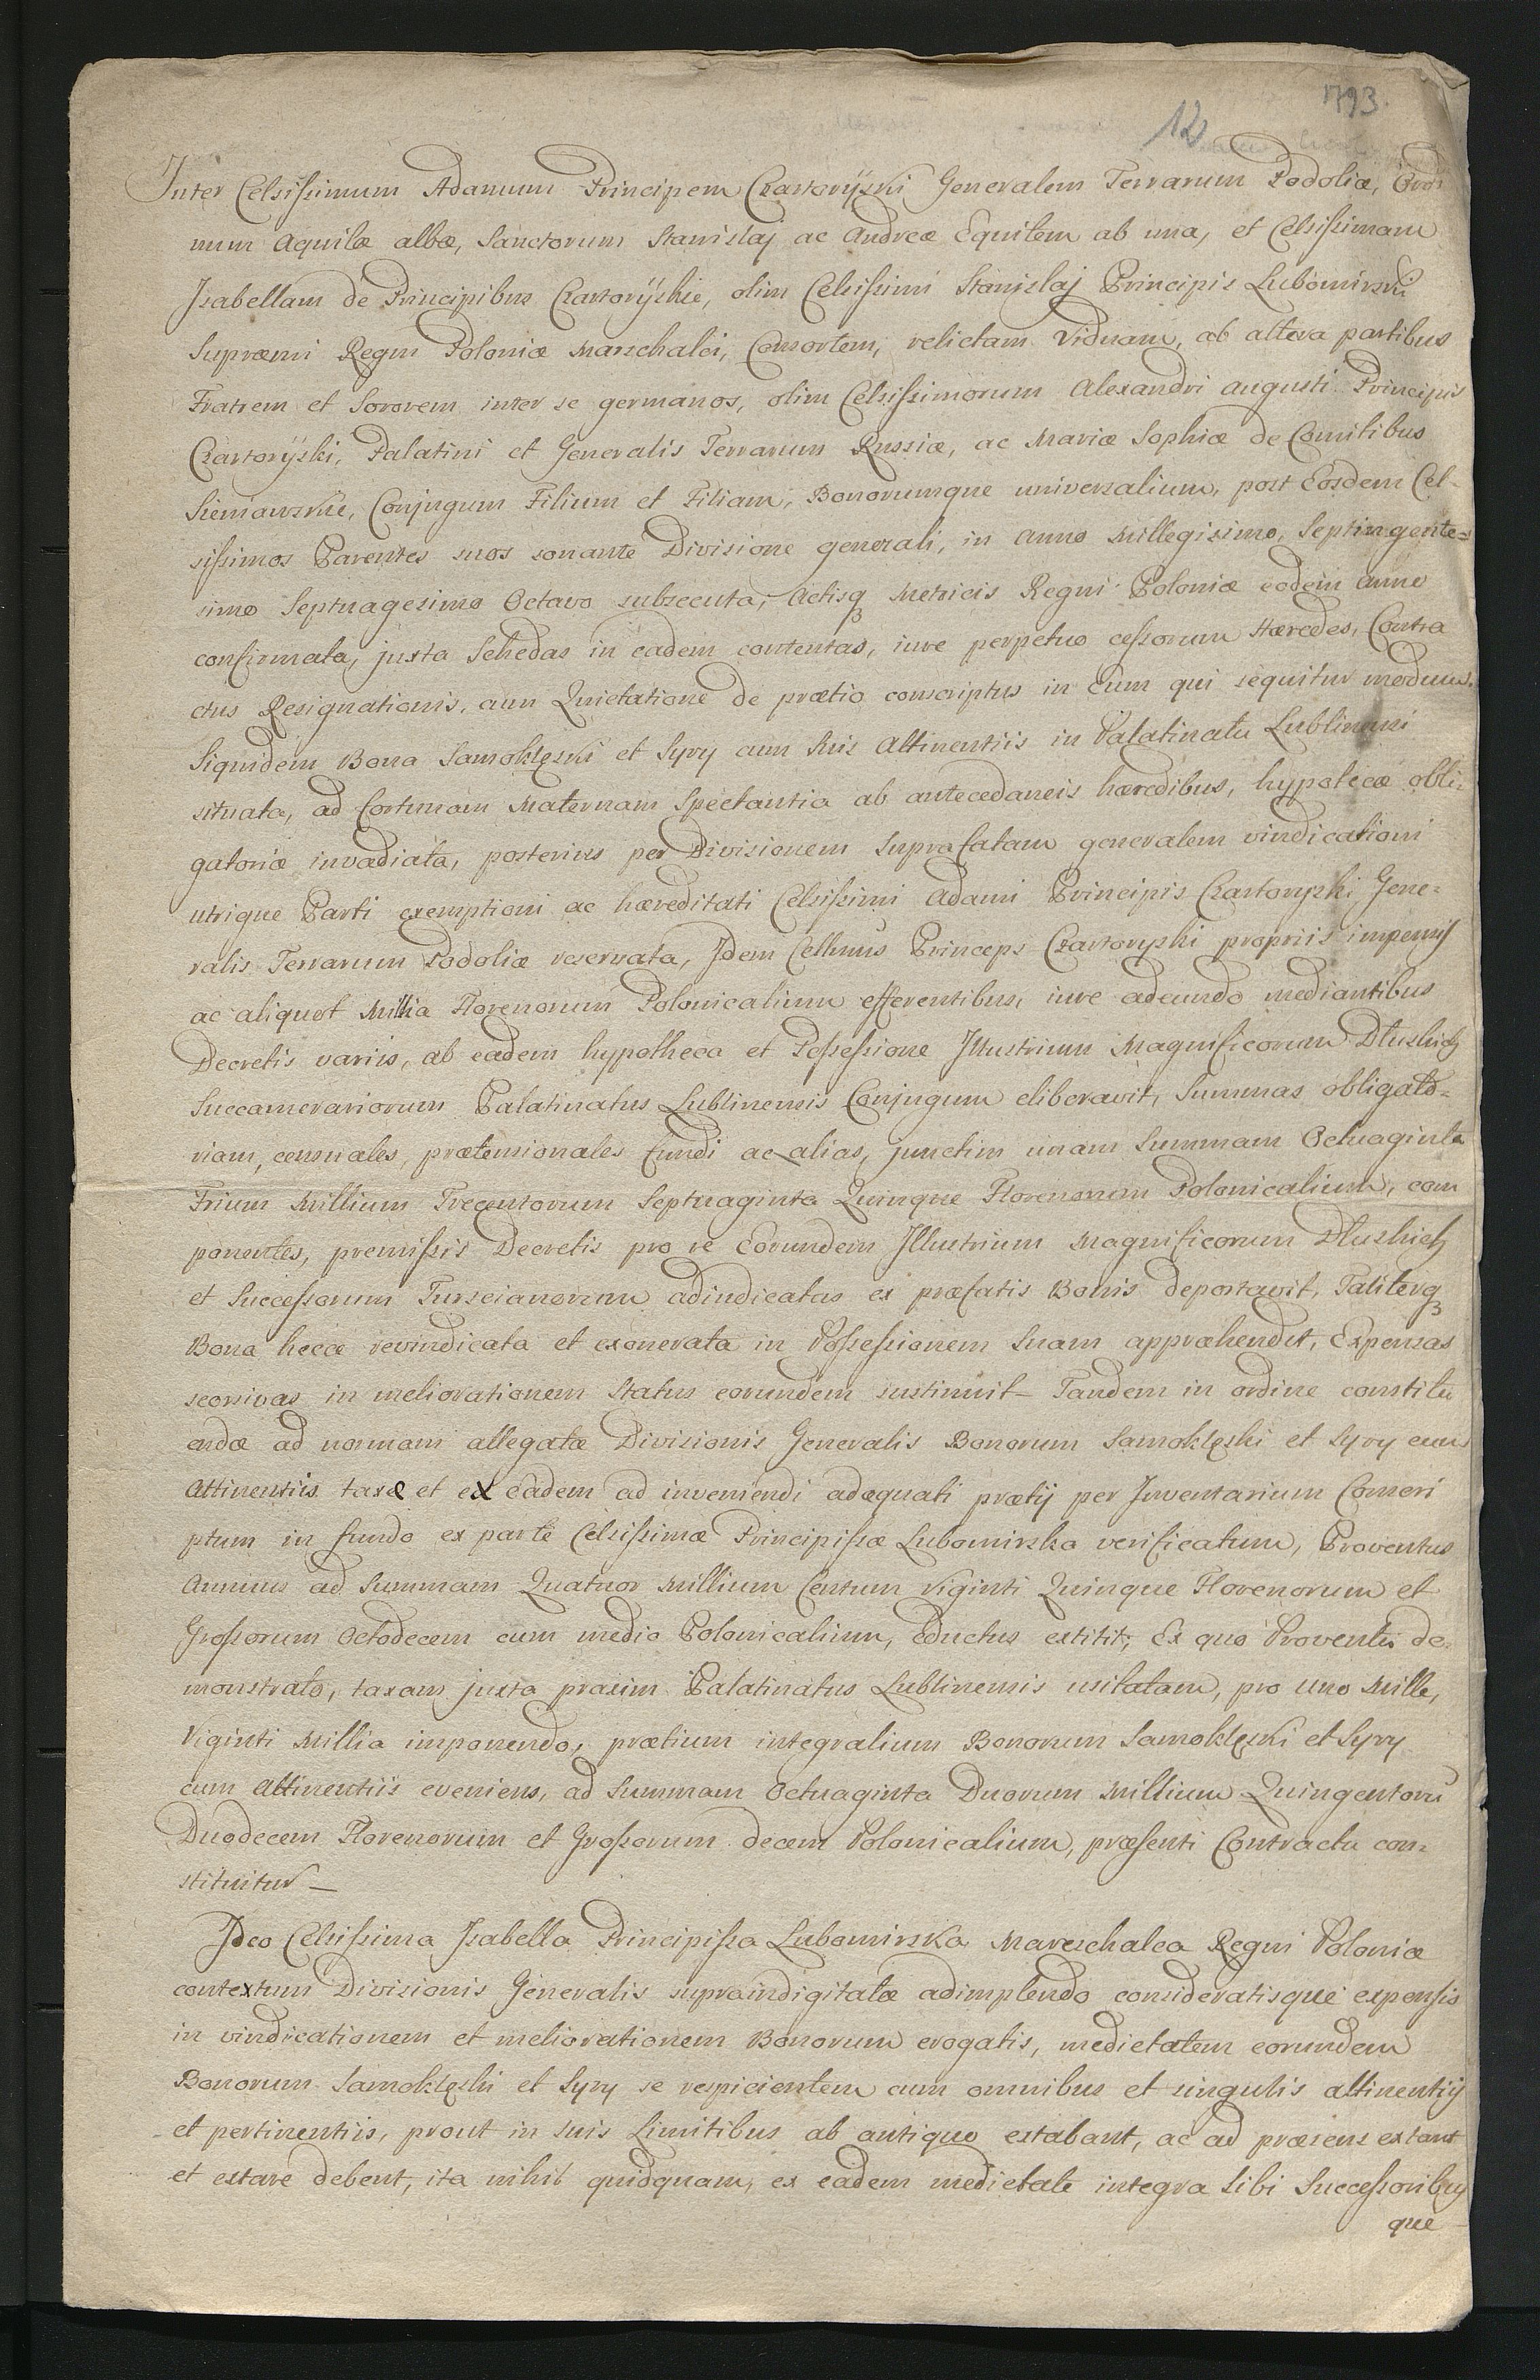 1793.
12
Inter Celsissimum Adamum Principem Czartoryski Generalem Terrarum Podoliæ, Ordi
num Aquilæ albæ, Sanctorum Stanislaj ac Andreæ Equitem ab una, et Celsissimam
Isabellam de Principibus Czartoryskie, olim Celsissimi Stanislaj Principis Lubomirski
Supræmi Regni Poloniæ Marschalci, Consortem, relictam Viduam, ab altera partibus
Fratrem et Sororem inter se germanos, olim Celsissimorum Alexandri Augusti Principis
Czartoryski, Palatini et Generalis Terrarum Russiæ, ac Mariæ Sophiæ de Comitibus
Sieniawskie, Conjugum Filium et Filiam, Bonorumque universalium, post Eosdem Cel-
sissimos Parentes suos sonante Divisione generali, in Anno Millegisimo, Septingente=
simo Septuagesimo Octavo subsecuta, Actisq Metricis Regni Poloniæ eodem Anno
confirmata, juxta Schedas in eadem contentas, iure perpetuo cessorum Hæredes, Contra
ctus Resignationis, cum Quietatione de prætio conscriptus in Eum qui sequitur modum.
Siquidem Bona Samoklęski et Syry cum suis Attinentiis in Palatinatu Lublinensi
situata, ad Fortunam Maternam Spectantia ab antecedaneis hæredibus, hypotecæ obli-
gatoriæ invadiata, posterius per Divisionem Suprafatam generalem vindicationi
utrique Parti exemptioni ac hæreditati Celsissimi Adami Principis Czartoryski Gene=
ralis Terrarum Podoliæ reservata, Idem Cellmus Princeps Czartoryski propriis impensis
ac aliquot Millia Florenorum Polonicalium efferentibus, iure adeundo mediantibus
Decretis variis, ab eadem hypotheca et Possessione Illustrium Magnificorum Dłuskich
Succamerariorum Palatinatus Lublinensis Conjugum eliberavit, Summas obligato=
riam, censuales, prætensionales fundi ac alias, junctim unam Summam Octuaginta
Trium Millium Trecentorum Septuaginta Quinque Florenorum Polonicalium, com
ponentes, premissis Decretis pro re Eorundem Illustrium Magnificorum Dłuskich
et Successorum Turscianorum adiudicatas ex præfatis Bonis deportavit, Taliterq
Bona hæcce revindicata et exonerata in Possessionem Suam appræhendit, Expensas
seorsivas in meliorationem Status eorundem sustinuit – Tandem in ordine constitu
endæ ad normam allegatæ Divisionis Generalis Bonorum Samoklęski et Syry cum
Attinentiis taxæ et ex eadem ad inveniendi adæquati prætij per Inventarium Conscri
ptum in fundo ex parte Celsissimæ Principissæ Lubomirska verificatum, Proventus
Annuus ad Summam Quatuor Millium Centum Viginti Quinque Florenorum et
Grossorum Octodecem cum medio Polonicalium, eductus extitit; Ex quo Proventu de=
monstrato, taxam juxta praxim Palatinatus Lublinensis usitatam, pro Uno Mille,
Viginti Millia imponendo, prætium integralium Bonorum Samoklęski et Syry
cum Attinentiis eveniens, ad Summam Octuaginta Duorum Millium Quingentorū
Duodecem Florenorum et Grossorum decem Polonicalium, præsenti Contractu con=
stituitur –
Ideo Celsissima Isabella Principissa Lubomirska Mareschalca Regni Poloniæ
contextum Divisionis Generalis supraindigitatæ adimplendo consideratisque expensis
in vindicationem et meliorationem Bonorum erogatis, medietatem eorundem
Bonorum Samoklęski et Syry se respicientem cum omnibus et singulis attinentijs
et pertinentiis, prout in suis Limitibus ab antiquo extabant, ac ad præsens extant
et extare debent, ita nihil quidquam, ex eadem medietate integra Sibi Successoribus
que